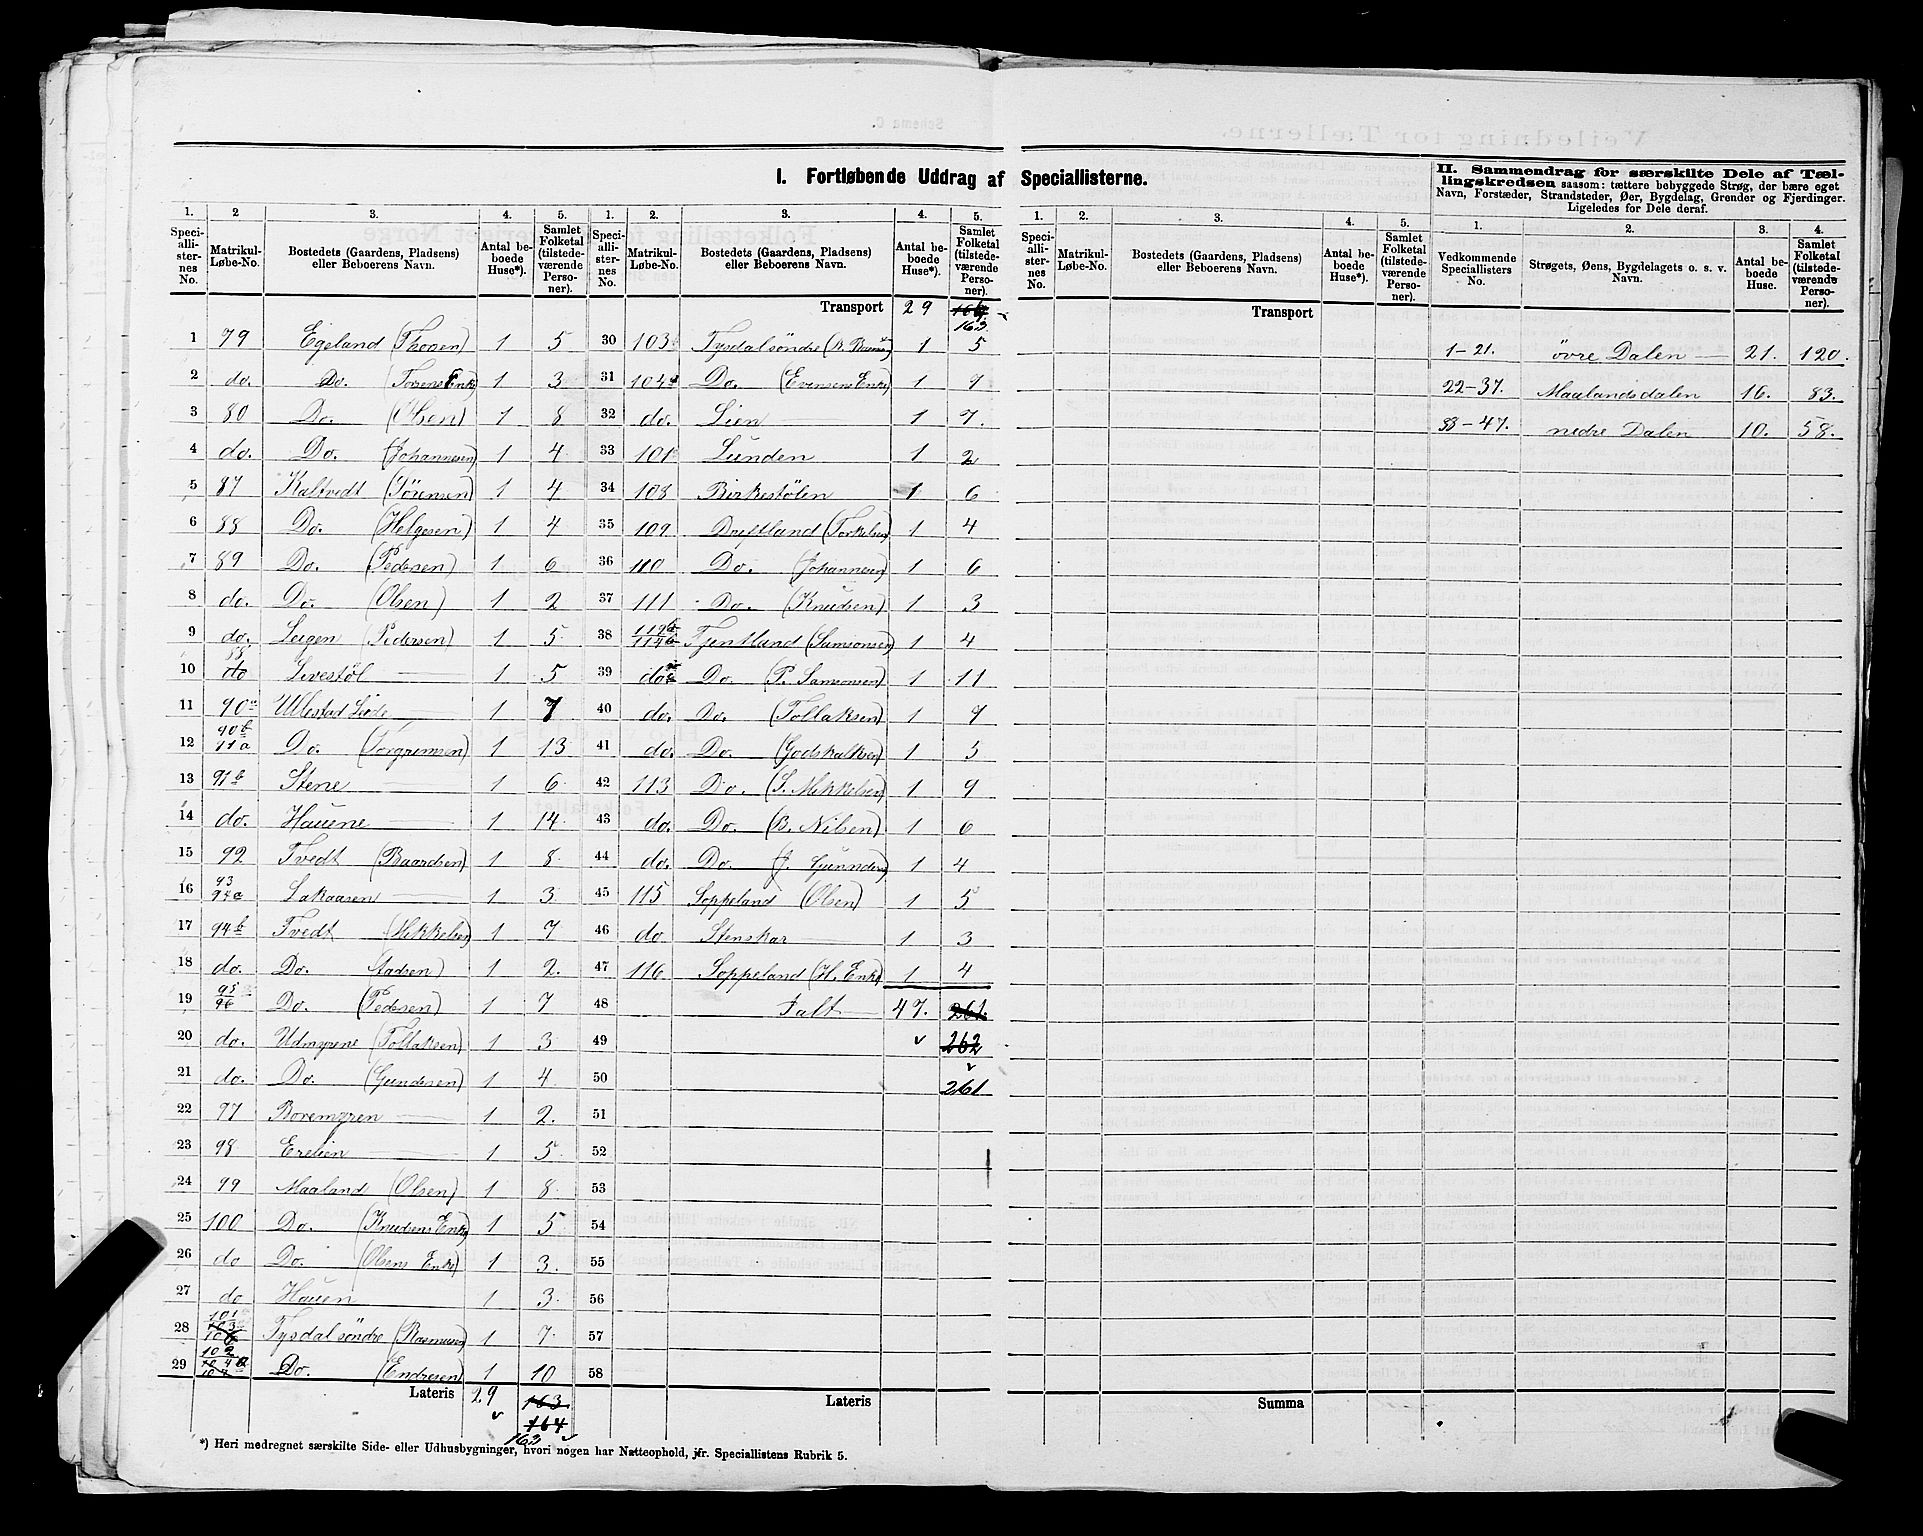 I. Fortløbende Uddrag af Speciallisterne.
II. Sammendrag for særskilte Dele af Tællingskredsen saasom: tættere bebyggede Strøg, der bære eget
Navn, Forstæder, Strandsteder, Øer, Bygdelag, Grender og Fjerdinger.
Ligeledes for Dele deraf.
1. 2 3. 4. 5.
Speciallisternes No. Matrikul-Løbe-No. Bostedets (Gaardens, Pladsens) eller Beboerens Navn. Antal beboede Huse*). Samlet Folketal (tilstedeværende Personer).
1 79 Egeland (Thosen) 1 5
2 do. Do. (Torsens Enke) 1 3
3 80 Do. (Olsen) 1 8
4 do. Do. (Johannesen) 1 4
5 87 Kaltvedt (Sørensen) 1 4
6 88 Do. (Helgesen) 1 4
7 89 Do. (Pedersen) 1 6
8 do. Do. (Olsen) 1 2
9 do. Leigen (Pedersen) 1 5
10 88 do Livestøl 1 5
11 90a Ullestad Leite 1 7
12 90b 91a Do. (Torgrimsen) 1 13
13 91b Stene 1 6
14 do. Hauene 1 14
15 92 Tvedt (Baardsen) 1 8
16 93 94a Lakaasen 1 3
17 94b Tvedt (Mikkelsen) 1 7
18 do. Do. Aadsen) 1 2.
19 95 96 Do. (Pedersen) 1 7
20 do. Udmyrene (Tollaksen) 1 3
21 do. Do. (Gundersen) 1 4
22 97 Boremyren 1 2.
23 98 Erelien 1 5
24 99 Maaland (Olsen) 1 8
25 100 Do. (Knudsens Enke) 1 5
26 do Do. (Olsens Enke) 1 3.
27 do Hauen 1 3
28 101 103 106 Tysdal søndre (Rasmusen) 1 7
29 102 104a 107 Do. (Endresen) 1 10
Lateris 29 163
164
163
*) Heri medregnet særskilte Side- eller Udhusbygninger, hvori nogen har Natteophold, jfr. Speciallistens Rubrik 5.
1. 2. 3. 4. 5.
Speciallisternes No. Matrikul-Løbe-No. Bostedets (Gaardens, Pladsens) eller Beboerens Navn. Antal beboede Huse*). Samlet Folketal (tilstedeværende Personer).
Transport 29 164
163
30 103 Tysdal søndre 1 5
31 104 Do. (Evensens Enke) 1 7
32 do. Lien 1 7.
33 101 Lunden 1 2
34 108 Birkestølen 1 6
35 109 Døftland (Torkelsen) 1 4
36 110 Do. (Johannesen) 1 6
37 111 Do. (Knudsen) 1 3
38 112b 114b Tjentland (Samsonsen) 1 4
39 do Do. (P. Samsonsen) 1 11
40 do. Do. (Tollaksen) 1 7
41 do. Do. (Godskalksen) 1 5
42 113 Do. (S. Mikkelsen) 1 9
43 do. Do. (B. Nilsen) 1 6
44 do. Do. (J. Gunnders) 1 4
45 115 Soppeland (Olsen) 1 5
46 do Stenskar 1 3
47 116 Soppeland (H. Enke) 1 4
48 Ialt 47. 261.
49 262
50 261
51
52
53
54
55
56
57
58
Lateris
1. 2. 3. 4. 5.
Speciallisternes No. Matrikul-Løbe-No. Bostedets (Gaardens, Pladsens) eller Beboerens Navn. Antal beboede Huse*). Samlet Folketal (tilstedeværende Personer).
Transport
Summa
1. 2. 3. 4.
Vedkommende Speciallisters No. Strøgets, Øens, Bygdelagets o. s. v. Navn. Antal beboede Huse. Samlet Folketal (tilstedeværende Personer).
1-21. øvre Dalen 21. 120.
22-37. Maalandsdalen 16. 83.
38-47. nedre Dalen 10. 58.